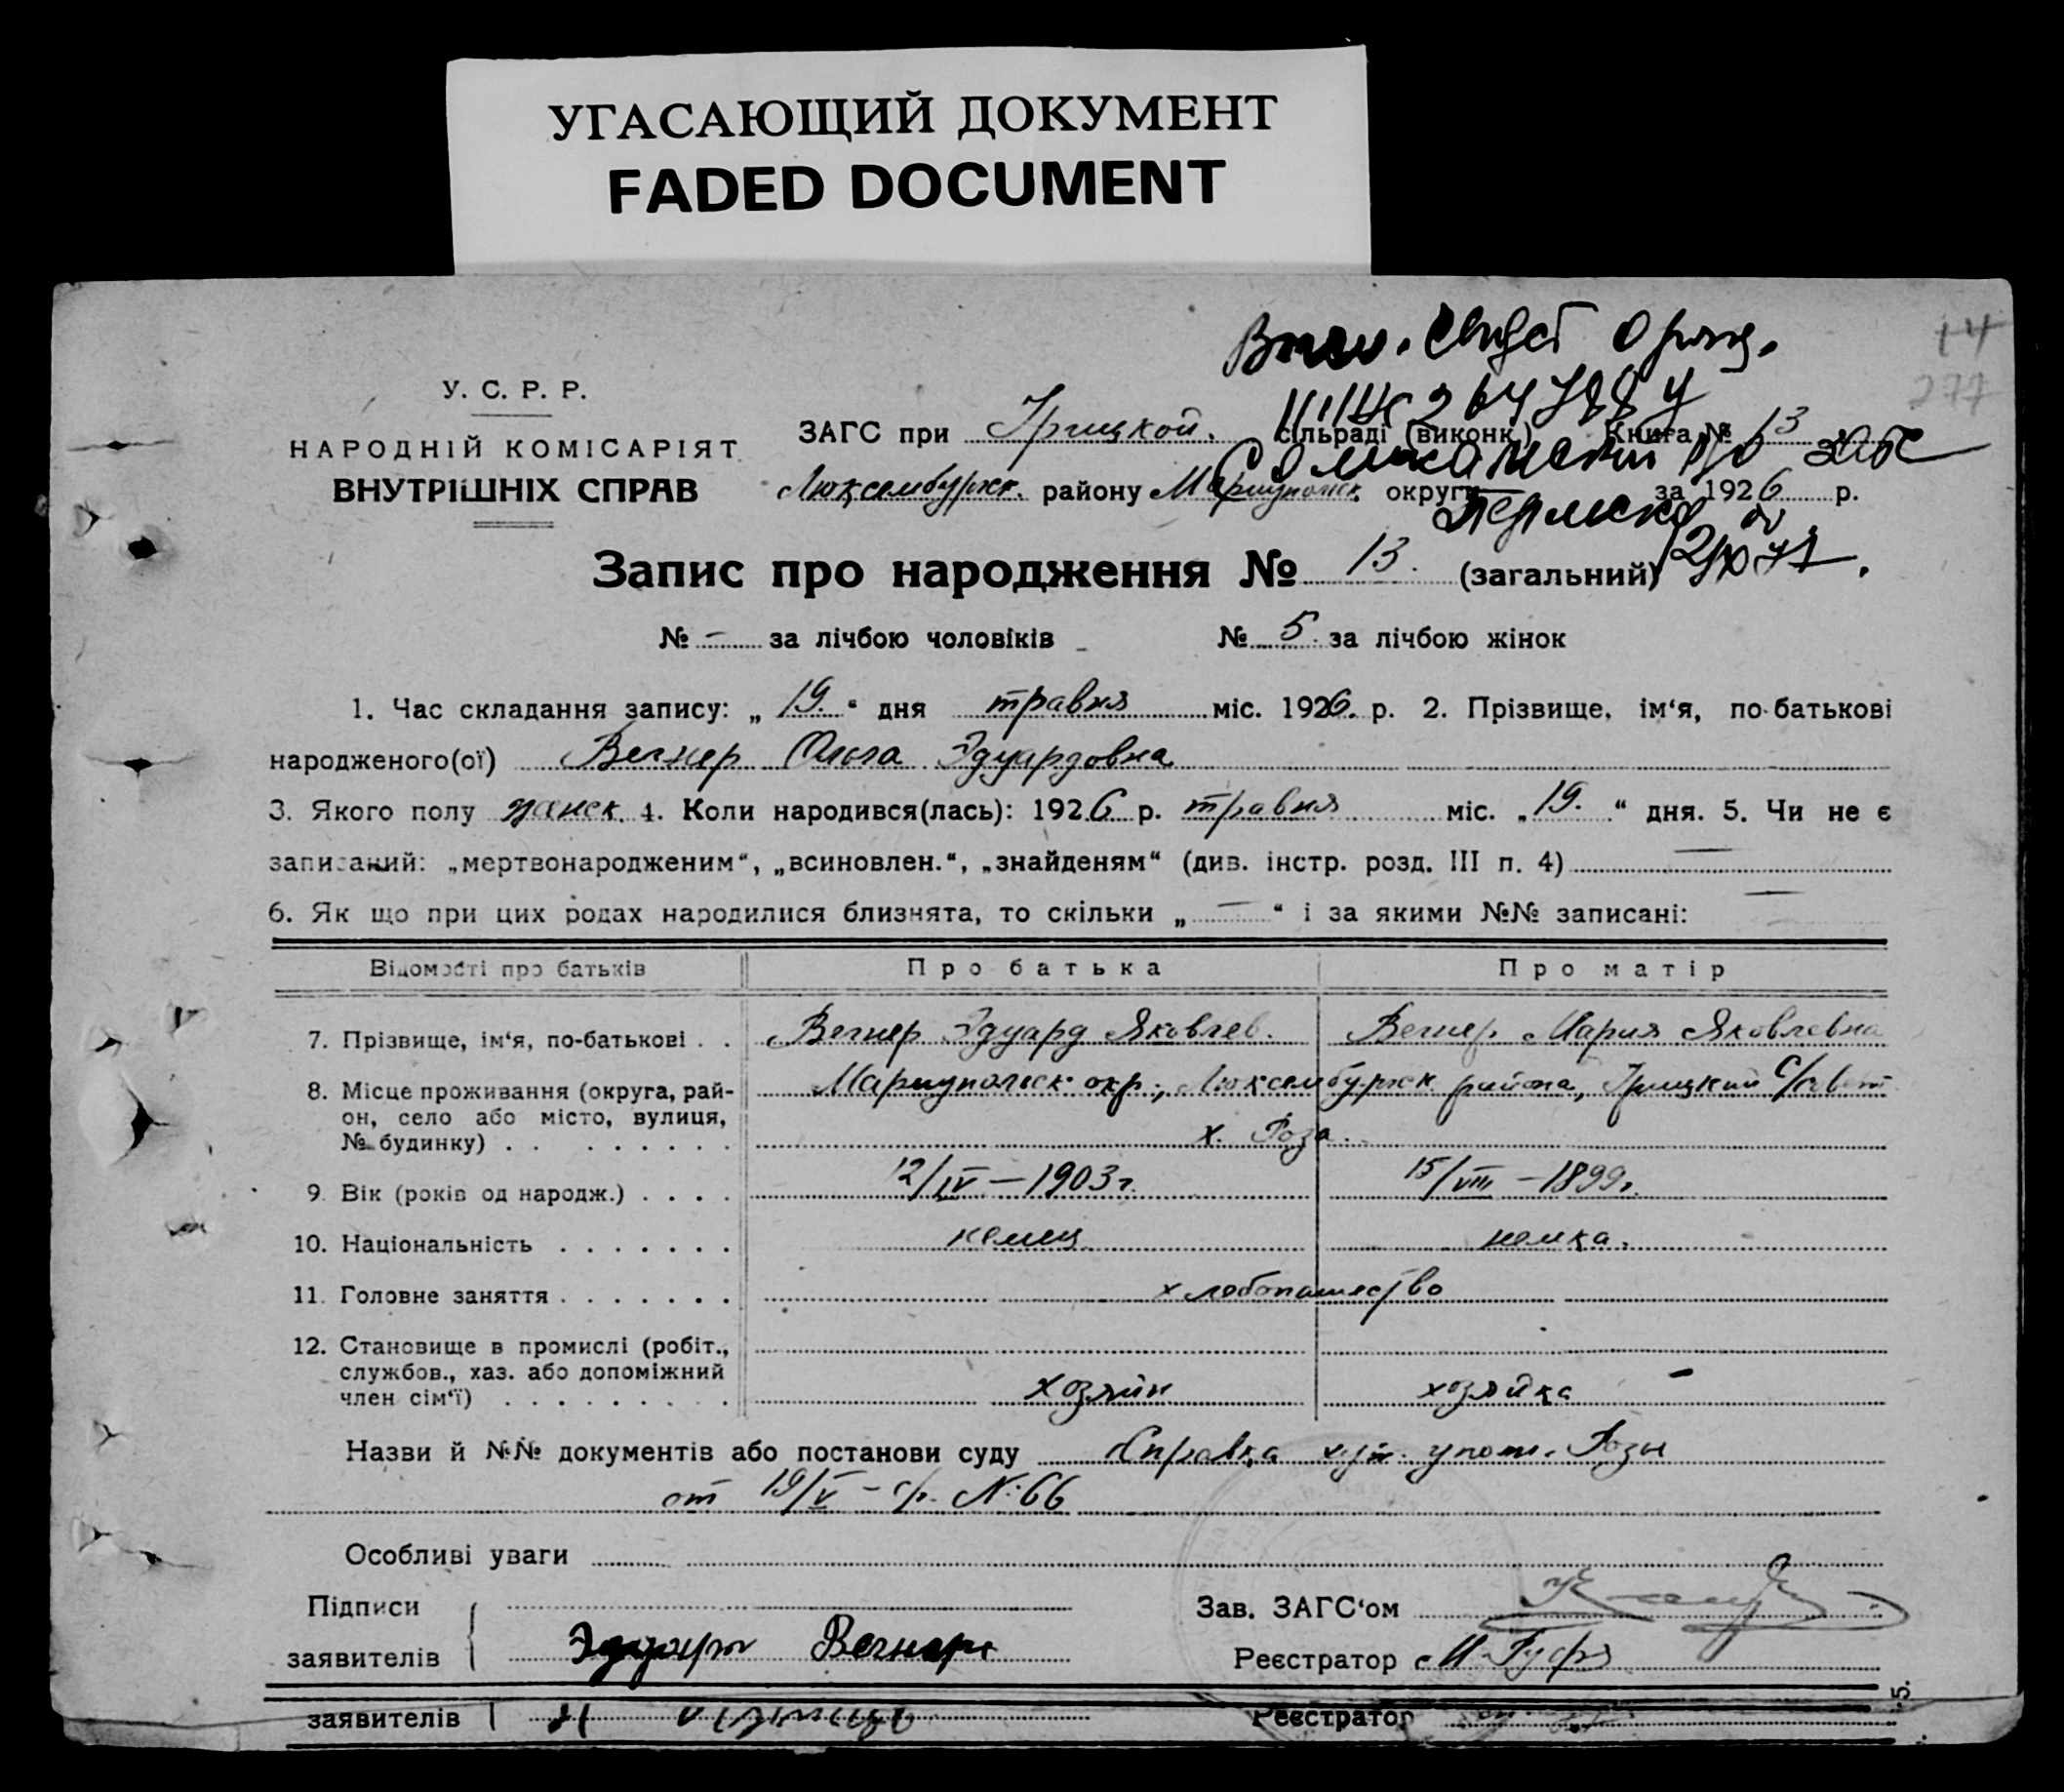 УГАСАЮЩИЙ ДОКУМЕНТ
FADED DOCUMENT
14
277
У. С. Р. Р.
НАРОДНІЙ КОМІСАРІЯТ
ВНУТРІШНІХ СПРАВ
ЗАГС при Грицкой. сільраді (виконк.) Книга № 13
Люксембургск. району Мариупольск. округи за 1926 р.
Запис про народження № 13. (загальний)
№ – за лічбою чоловіків № 5. за лічбою жінок
1. Час складання запису: „ 19. “ дня травня міс. 1926. р. 2. Прізвище, ім‘я, по-батькові
народженого(ої) Вегнер Ольга Эдуардовна
3. Якого полу 4. Коли народився(лась): 1926 р. травня міс. „ 19. “ дня. 5. Чи не є
записаний: „мертвонародженим“, „всиновлен.“, „знайденям“ (див. інстр. розд. III п. 4) —
6. Як що при цих родах народилися близнята, то скільки „ — “ і за якими №№ записані: —
Відомості про батьків Про батька Про матір
7. Прізвище, ім‘я, по-батькові . . Вегнер Эдуард Яковлев. Вегнер Мария Яковлевна
8. Місце проживання (округа, рай- Мариупольск. окр., Люксембургск района, Грицкий с/совет
он, село або місто, вулиця,
№ будинку) . . . . . . . . х. Роза.
9. Вік (років од народж.) . . . . 12/IV – 1903 г. 15/VIII – 1899 г.
10. Національність . . . . . . . немец немка.
11. Головне заняття . . . . . . . хлебопашество
12. Становище в промислі (робіт.,
службов., хаз. або допоміжний
член сім‘ї) . . . . . . . . . хозяин хозяйка –
Назви й №№ документів або постанови суду Справка хут. упол. Розы
от 19/V – с/г. №: 66
Особливі уваги
Підписи Зав. ЗАГС‘ом
заявителів Эдуард Вегнер Реєстратор
заявителів Реєстратор